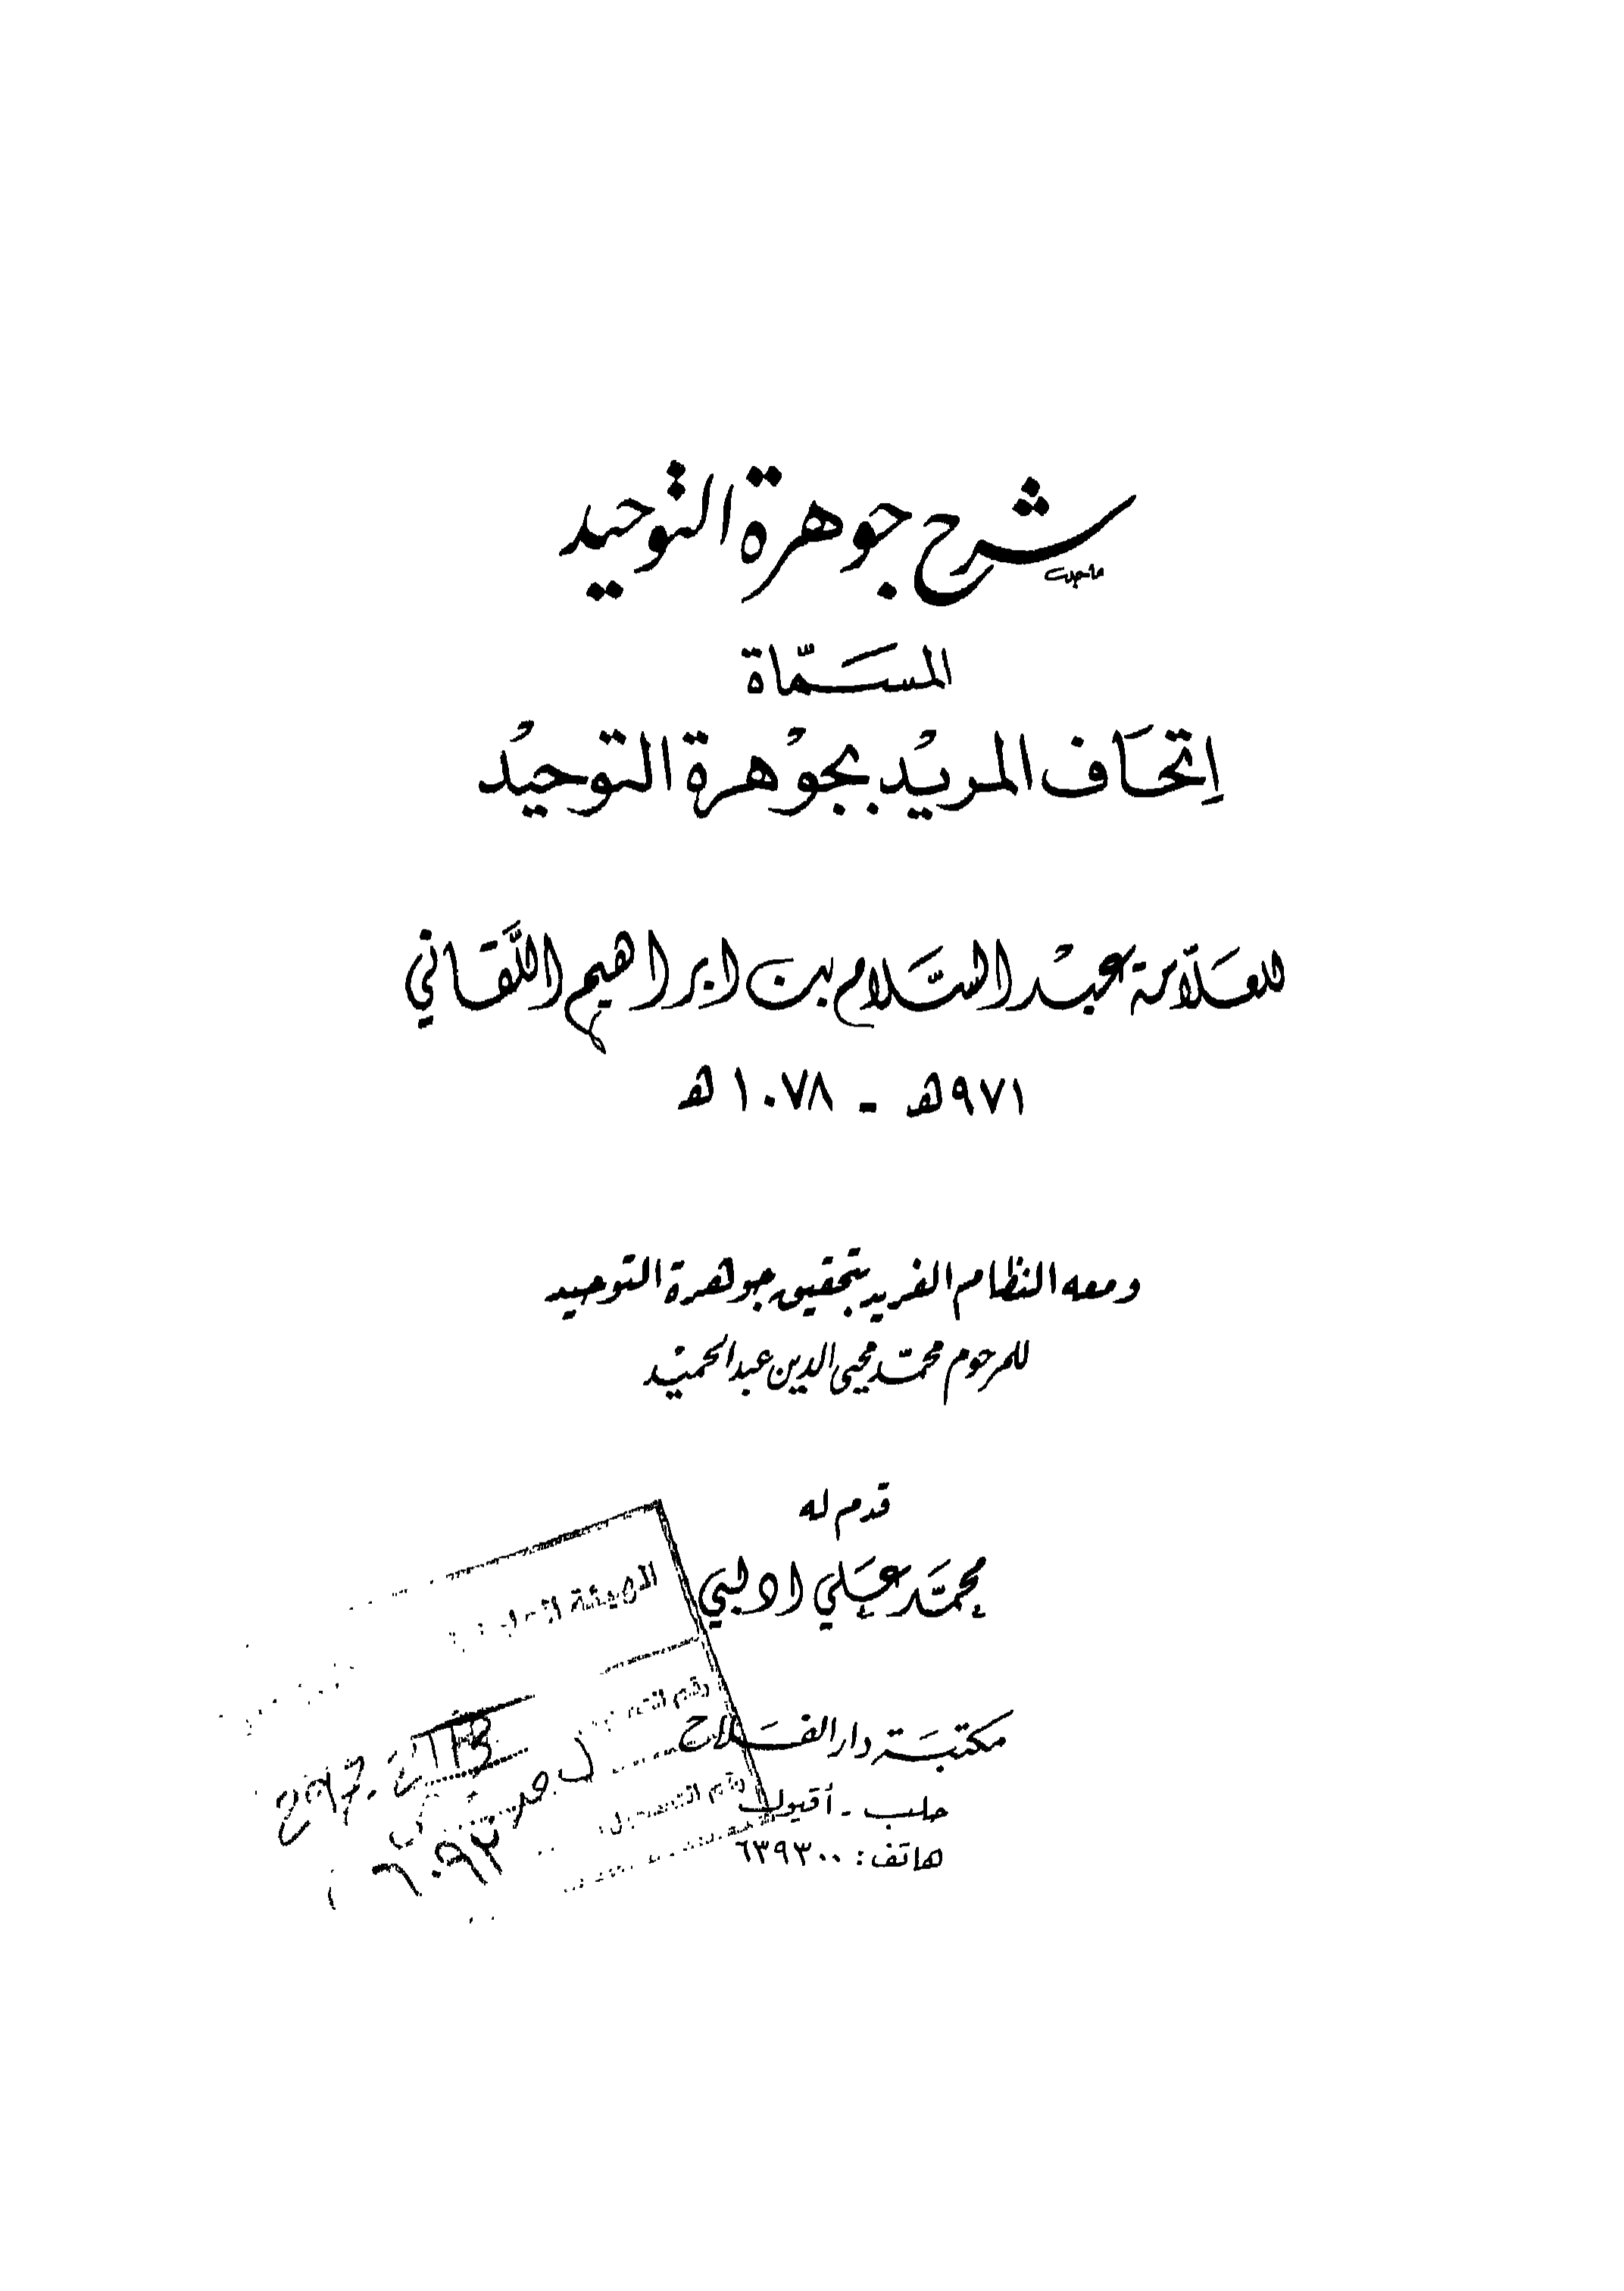 شرح جوهرة التوحيد
المسَمّاة
إتحَاف المريْد بجوْهرة التوحيْد
للعَلّامة عبْد السَّلام بن ابراهيم اللَّقَاني
٩٧١ هـ - ١٠٧٨ هـ
ومعه النظام الفريد بتحقيق جوهرة التوحيد
للمرحوم محمّد محيى الدين عبد الحميْد
قدم له
محمَّد عَلي ادلبي
مكتبَة دار الفَلاح
حلب - أقيول
هاتف: ٦٣٩٣٠٠
الهيئة
رقم
رقم التسجيل
٦٠٩٣